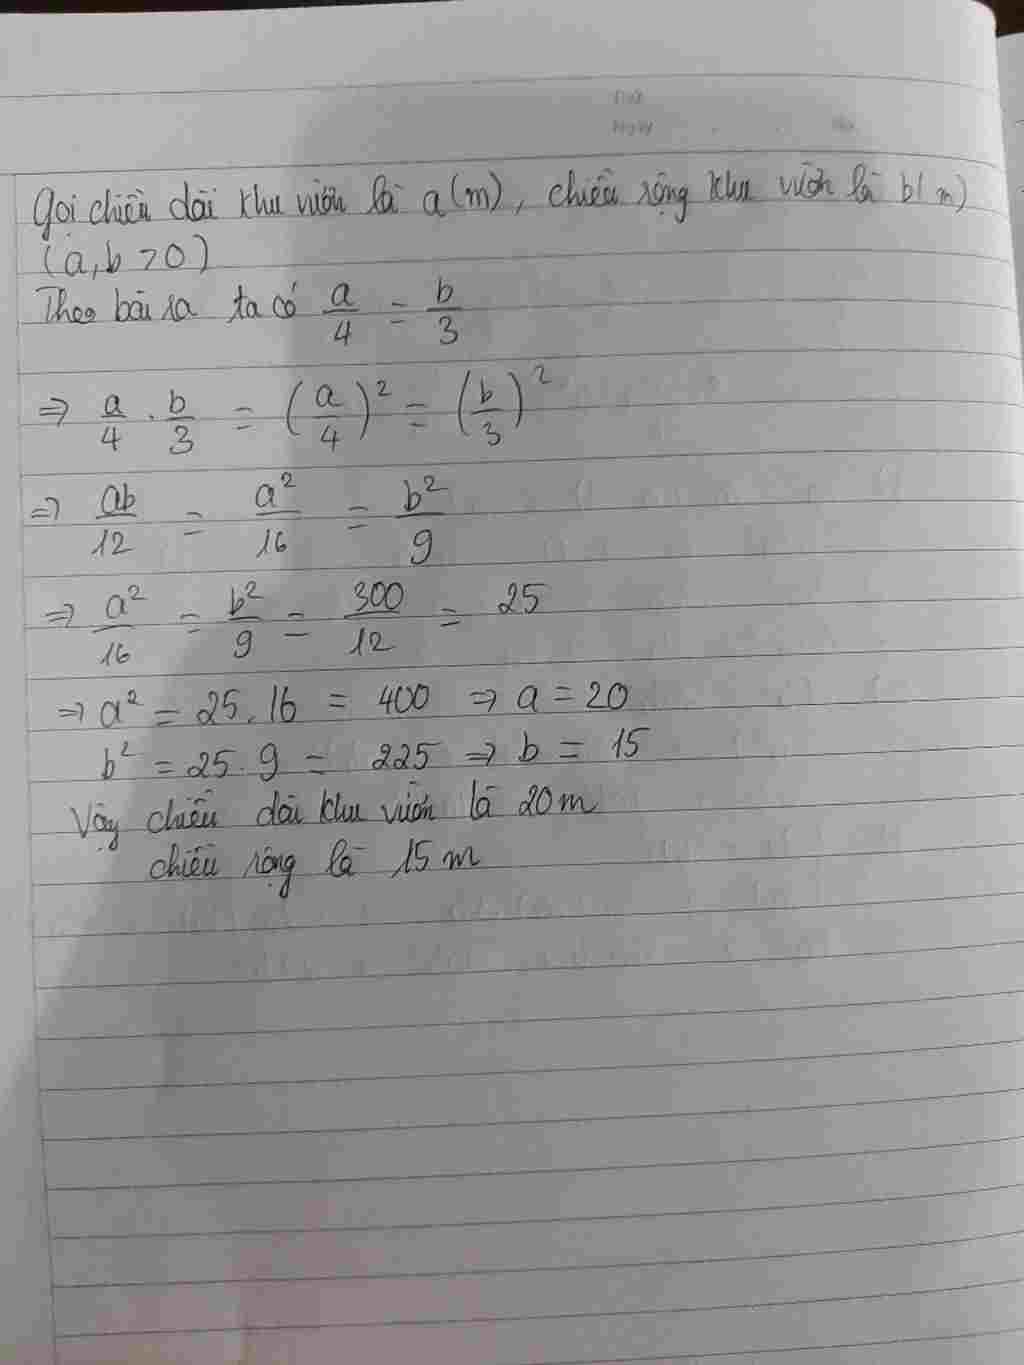 Gọi chiều dài khu vườn là a(m), chiều rộng khu vườn là b(m)
(a,b >0)
Theo bài ra ta có a/4 = b/3
=> a/4 . b/3 = (a/4)² = (b/3)²
=> ab/12 = a²/16 = b²/9
=> a²/16 = b²/9 = 300/12 = 25
=> a² = 25.16 = 400 => a = 20
b² = 25.9 = 225 => b = 15
Vậy chiều dài khu vườn là 20m
chiều rộng là 15m